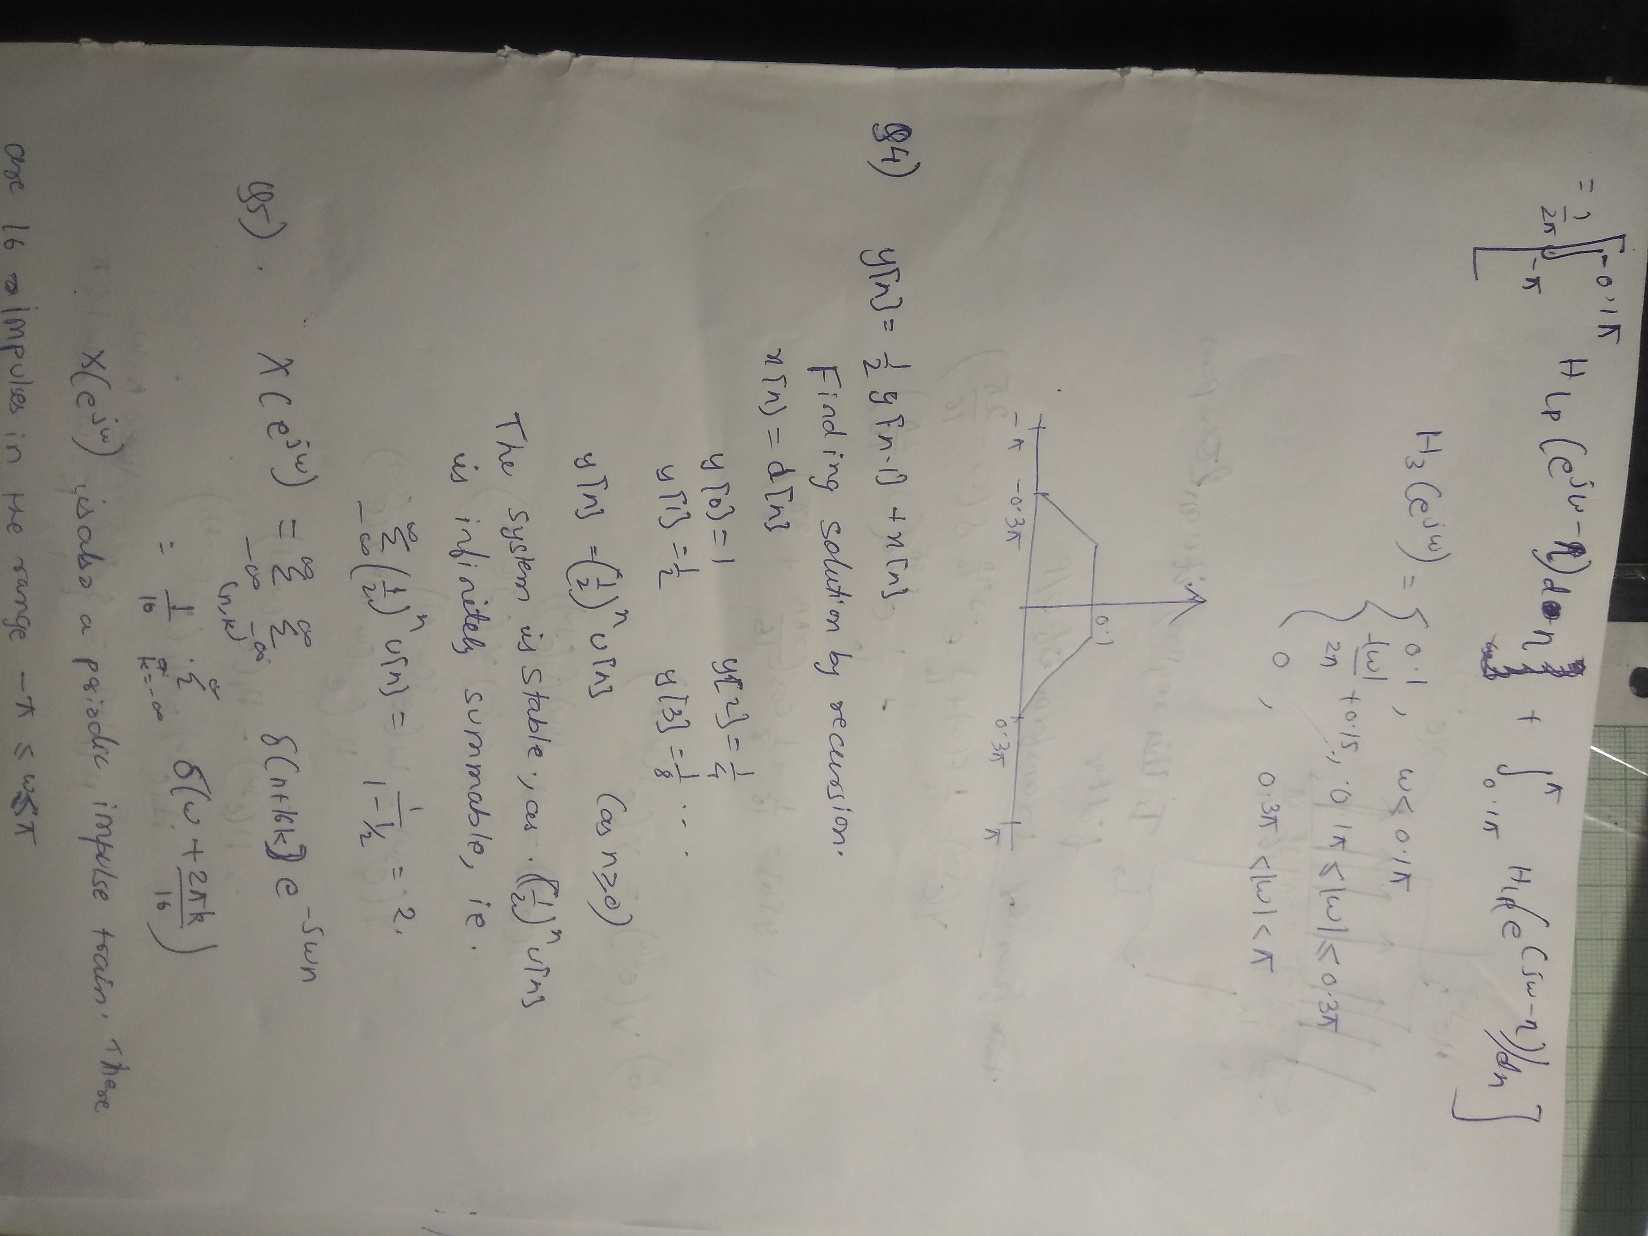 = 1/2π [ ∫_{-π}^{-0.1π} H_LP(e^{jω-η})dη + ∫_{0.1π}^{π} H_LP(e^{(jω-η)})dη ]
H_3(e^{jω}) = { 0.1, ω < 0.1π
-|ω|/2π + 0.15, 0.1π ≤ |ω| ≤ 0.3π
0, 0.3π < |ω| < π
0.1
-π -0.3π 0.3π π
Q4) y[n] = 1/2 y[n-1] + x[n]
Finding solution by recursion.
x[n] = d[n]
y[0] = 1 y[2] = 1/4
y[1] = 1/2 y[3] = 1/8 ...
y[n] = (1/2)^n u[n] (as n≥0)
The system is stable, as (1/2)^n u[n]
is infinitely summable, ie.
Σ_{-∞}^{∞} (1/2)^n u[n] = 1/(1-1/2) = 2.
Q5). X(e^{jω}) = Σ_{-∞}^{∞} Σ_{-∞}^{∞} δ[n+16k] e^{-jωn}
(n,k)
= 1/16 Σ_{k=-∞}^{∞} δ(ω + 2πk/16)
X(e^{jω}) is also a periodic, impulse train. There
are 16 impulses in the range -π ≤ ω ≤ π